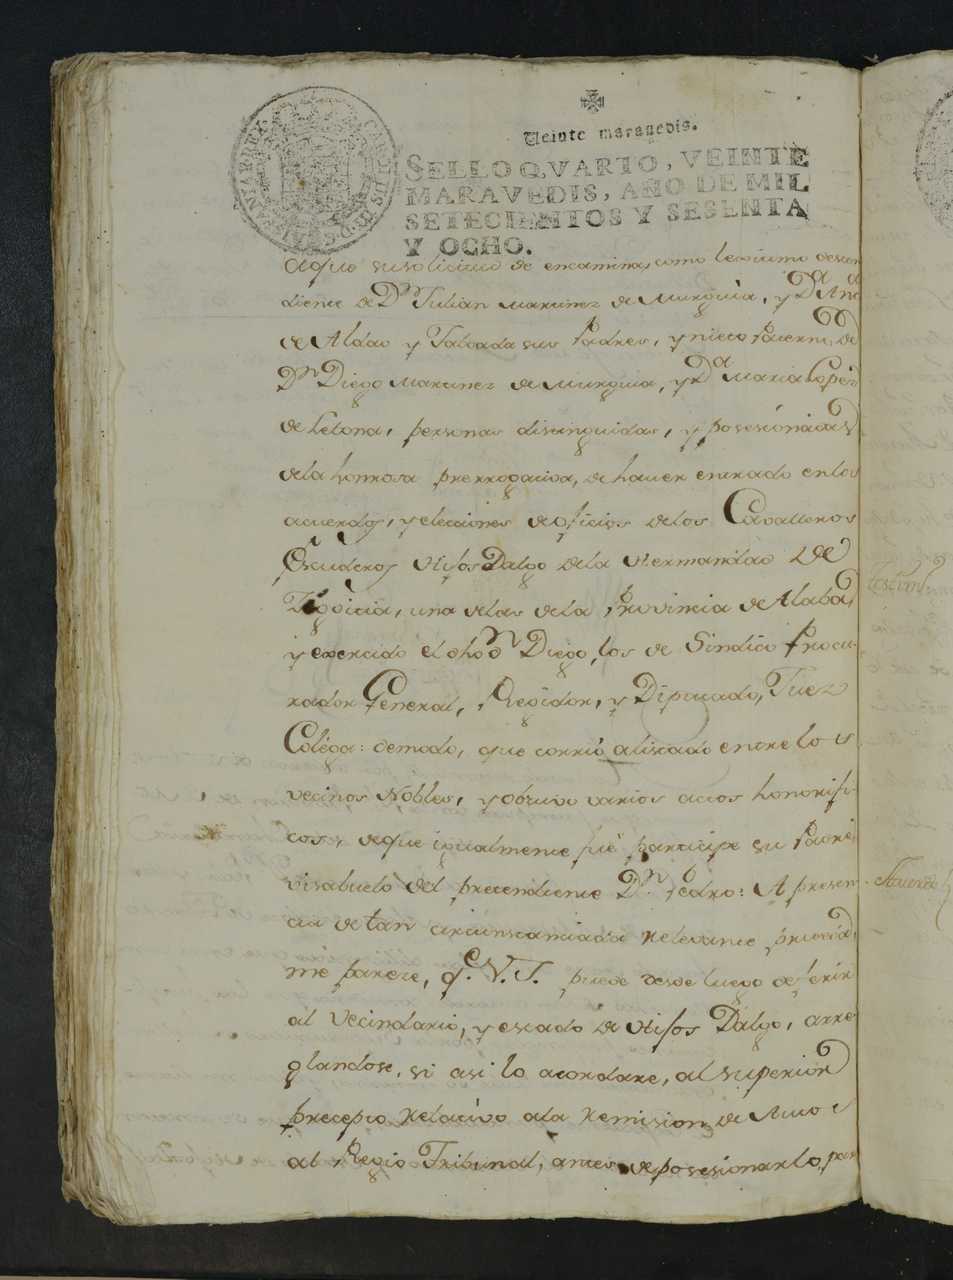 Veinte maravedis.
SELLO QVARTO, VEINTE
MARAVEDIS, AÑO DE MIL
SETECIENTOS Y SESENTA
Y OCHO.
aque su solicitud se encamina, como lexitimo descen
diente de Dn. Julian Martinez de Murguia, y Da. Ana
de Aldao y Taboada sus Padres, y nieto Paterno de
Dn Diego Martinez de Murguia, y Da Maria Lopez
de Letona, personas distinguidas, y posesionadas
dela honrrosa prerrogativa, de haver entrado en los
acuerdos, y elecciones de oficios de los Cavalleros
Escuderos Hijos Dalgo dela Hermandad de
Zigoitia, una delas dela Provincia de Alaba,
y exercido el dho Dn Diego, los de Sindico Procu-
rador General, Regidor, y Diputado, Juez
Colega: demodo, que corrio alistado entre los
vecinos Nobles, y obtuvo varios actos honorifi-
cos, deque igualmente fué participe su Padre
visabuelo del pretendiente Dn. Pedro: A presen
cia de tan circunstanciada relevante prueva,
me pareze, qe. V.S. puede desde luego deferir
al Vecindario, y estado de Hijos Dalgo, arre
glandose, si asi lo acordare, al superior
precepto relativo ala remision de Autos
al Regio Tribunal, antes de posesionarlo, par